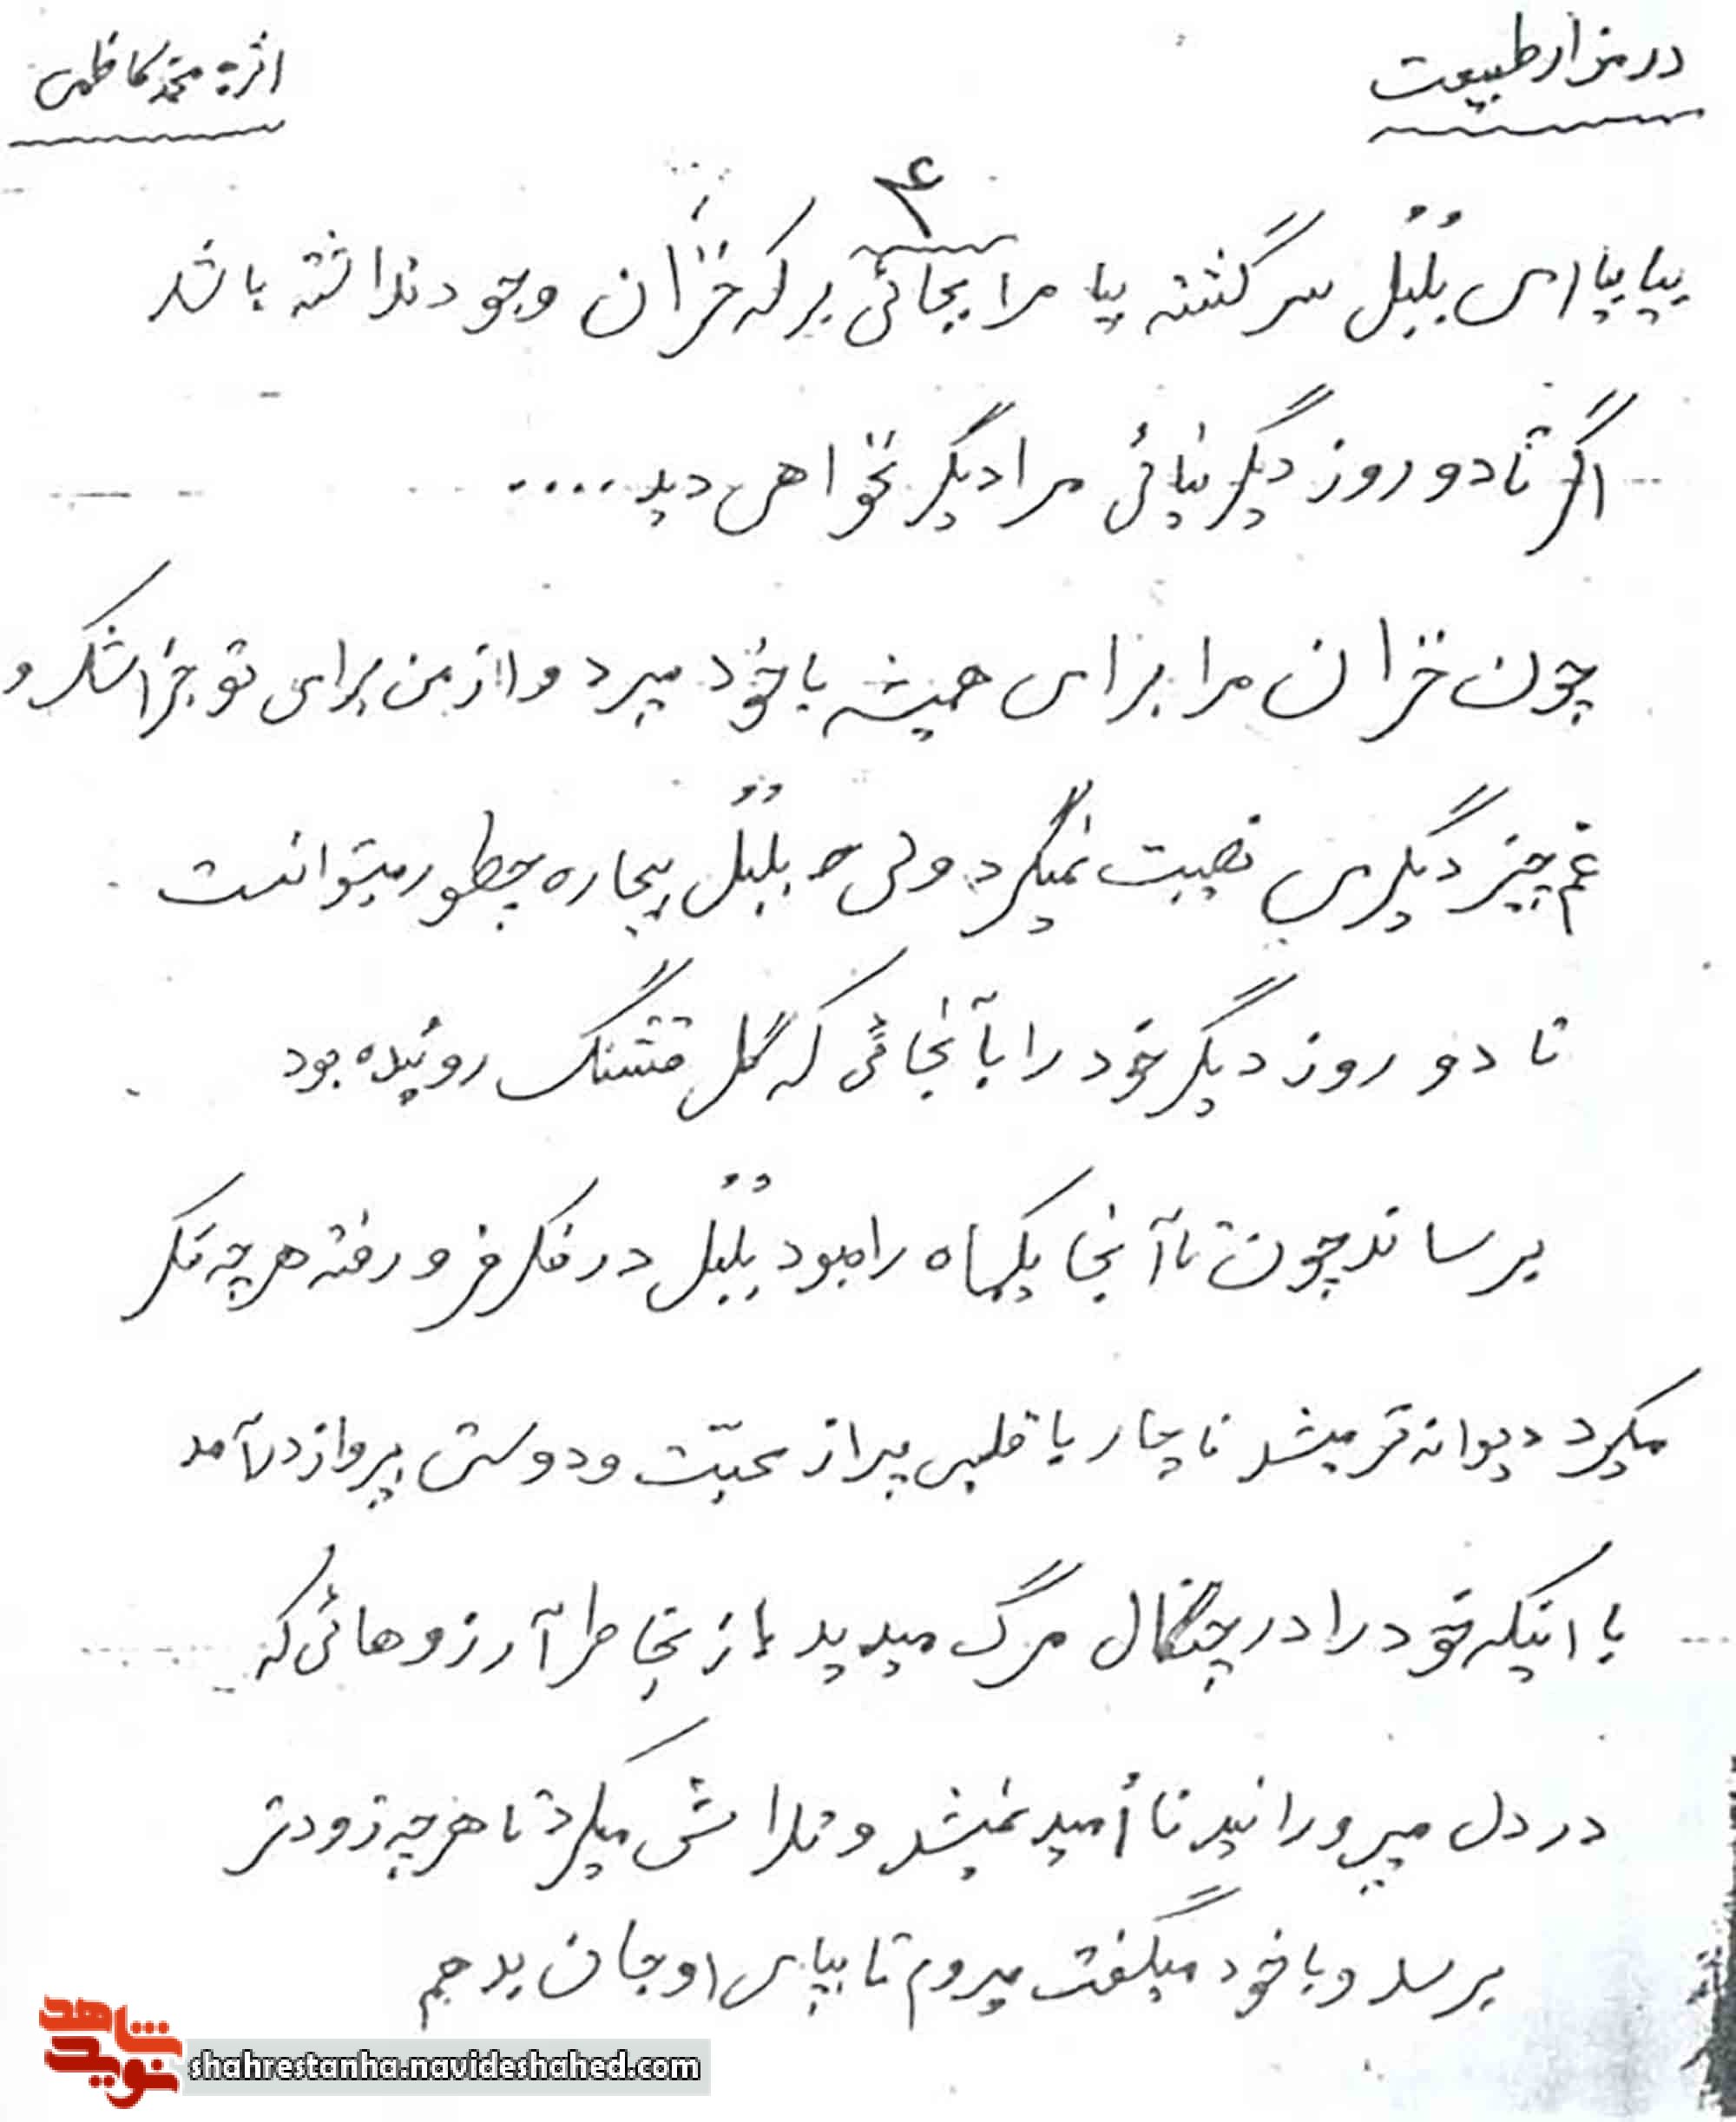 در مزار طبیعت
اثر: محمد کاظمی
۴
بیا بیا ای بُلبُل سرگشته بیا مرا بجائی ببر که خزان وجود نداشته باشد
اگر تا دو روز دیگر نیائی مرا دیگر نخواهی دید ....
چون خزان مرا برای همیشه با خود میبرد و از من برای تو جز اشک و
غم چیز دیگری نصیبت نمیگردد ولی بلبُل بیچاره چطور میتوانست
تا دو روز دیگر خود را بآنجائی که گل قشنگ روئیده بود
برساند چون تا آنجا یکماه راه بود بُلبُل در فکر فرو رفته هر چه فکر
میکرد دیوانه تر میشد ناچار با قلبی پر از محبّت و دوستی بپرواز درآمد
با اینکه خود را در چنگال مرگ میدید باز بخاطر آرزوهائی که
در دل میپرورانید نا أمید نمیشد و تلاش میکرد تا هر چه زودتر
برسد و با خود میگفت میروم تا بپای او جان بدهم
شاهد
نوید
shahrestanha.navideshahed.com